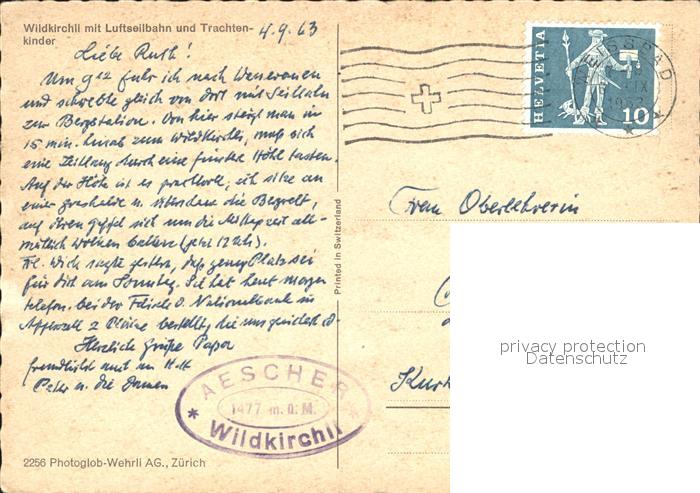 Wildkirchli mit Luftseilbahn und Trachten-
kinder
4.9.63
Liebe Ruth!
Um 9 12 fuhr ich nach Wasserauen
und schwebte gleich von dort mit Seilbahn
zur Bergstation. Von hier steigt man in
15 min. hinab zum Wildkirchli, muß sich
eine Zeitlang durch eine finstre Höhle tasten.
Auf der Höhe ist es prachtvoll, ich sitze an
einer Grashalde u. die Bergwelt,
auf deren Gipfel sich um die Mittagszeit all-
mählich Wolken ballen (jetzt 12 Uhr).
Frl. Wick sagte gestern, daß genug Platz sei
für dich am Sonntag. Sie hat heut morgen
telefon. bei der Nationalbank in
Appenzell 2 Plätze bestellt, die uns
Herzliche Grüße Papa
Peter u. die Damen
Frau Oberlehrerin
Kur
HELVETIA
10
RAD
IX
AESCHER
1477 m.ü.M.
* Wildkirchli *
Printed in Switzerland
2256 Photoglob-Wehrli AG., Zürich
privacy protection
Datenschutz